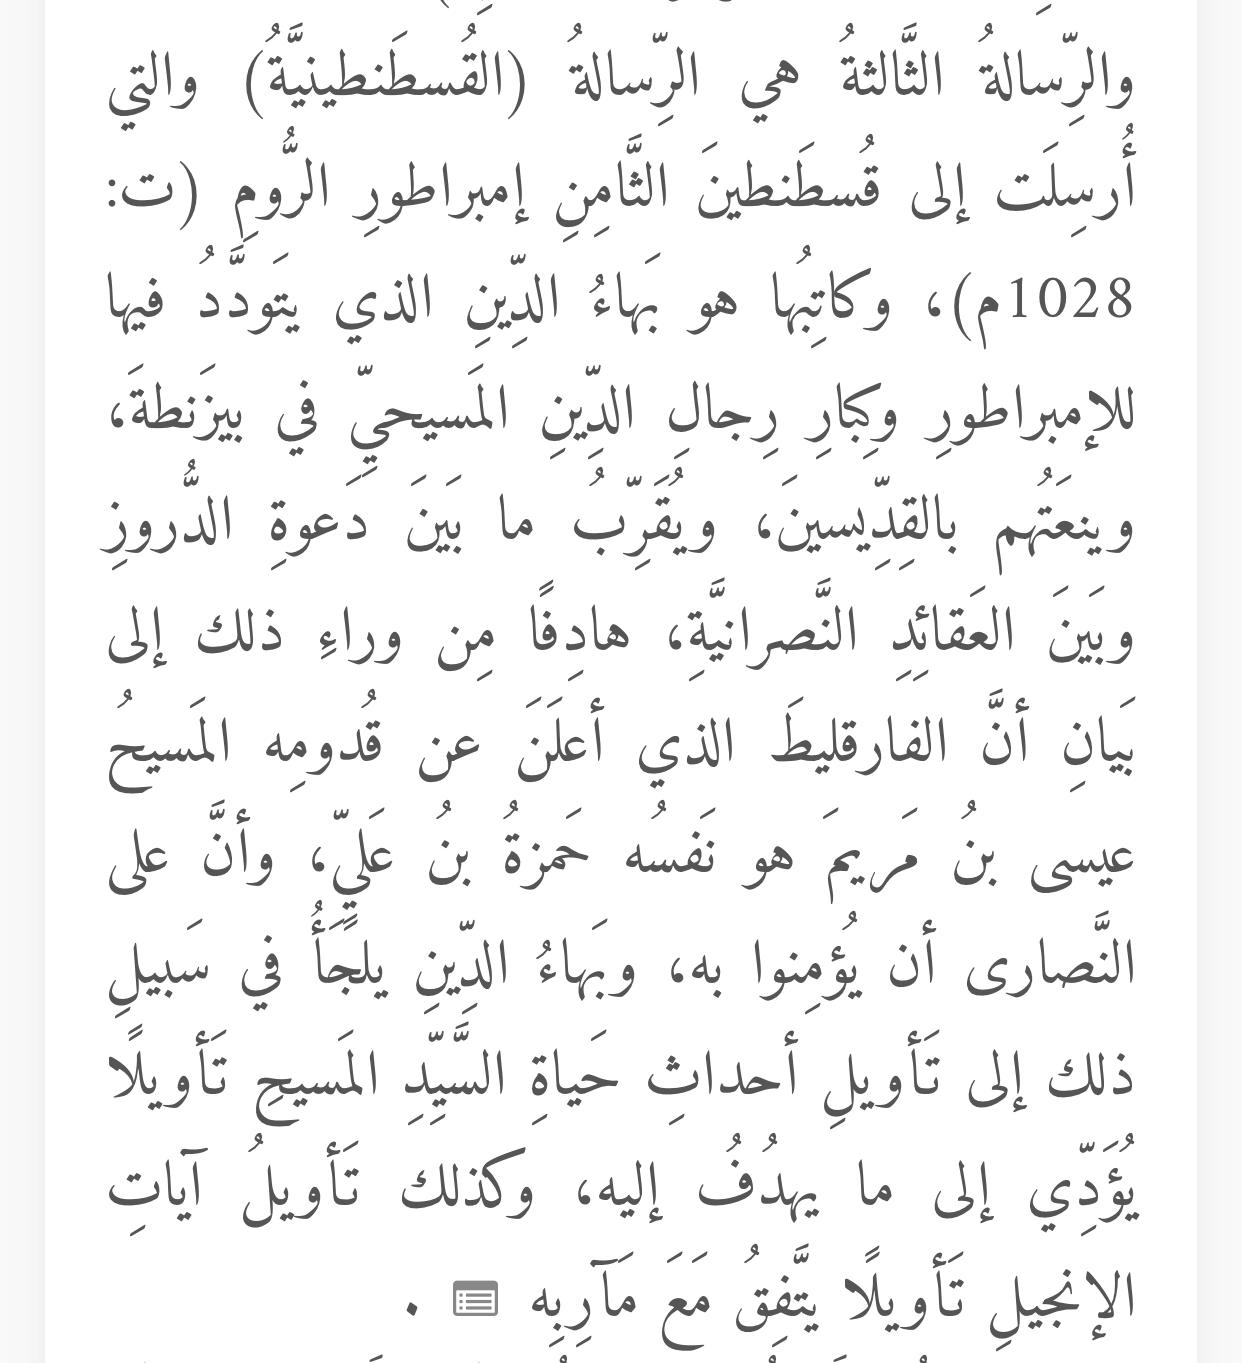 والرِّسالةُ الثَّالثةُ هي الرِّسالةُ (القُسطَنطينيَّةُ) والتي
أُرسِلَت إلى قُسطَنطينَ الثَّامِنِ إمبراطورِ الرُّومِ (ت:
1028م)، وكاتِبُها هو بَهاءُ الدِّينِ الذي يتَودَّدُ فيها
للإمبراطورِ وكِبارِ رِجالِ الدِّينِ المَسيحيِّ في بيزَنطةَ،
وينعَتُهم بالقِدِّيسينَ، ويُقَرِّبُ ما بَينَ دَعوةِ الدُّروزِ
وبَينَ العَقائِدِ النَّصرانيَّةِ، هادِفًا مِن وراءِ ذلك إلى
بَيانِ أنَّ الفارقليطَ الذي أعلَنَ عن قُدومِه المَسيحُ
عيسى بنُ مَريمَ هو نَفسُه حَمزةُ بنُ عَليٍّ، وأنَّ على
النَّصارى أن يُؤمِنوا به، وبَهاءُ الدِّينِ يلجَأُ في سَبيلِ
ذلك إلى تَأويلِ أحداثِ حَياةِ السَّيِّدِ المَسيحِ تَأويلًا
يُؤَدِّي إلى ما يهدُفُ إليه، وكذلك تَأويلُ آياتِ
الإنجيلِ تَأويلًا يتَّفِقُ مَعَ مَآرِبِه .